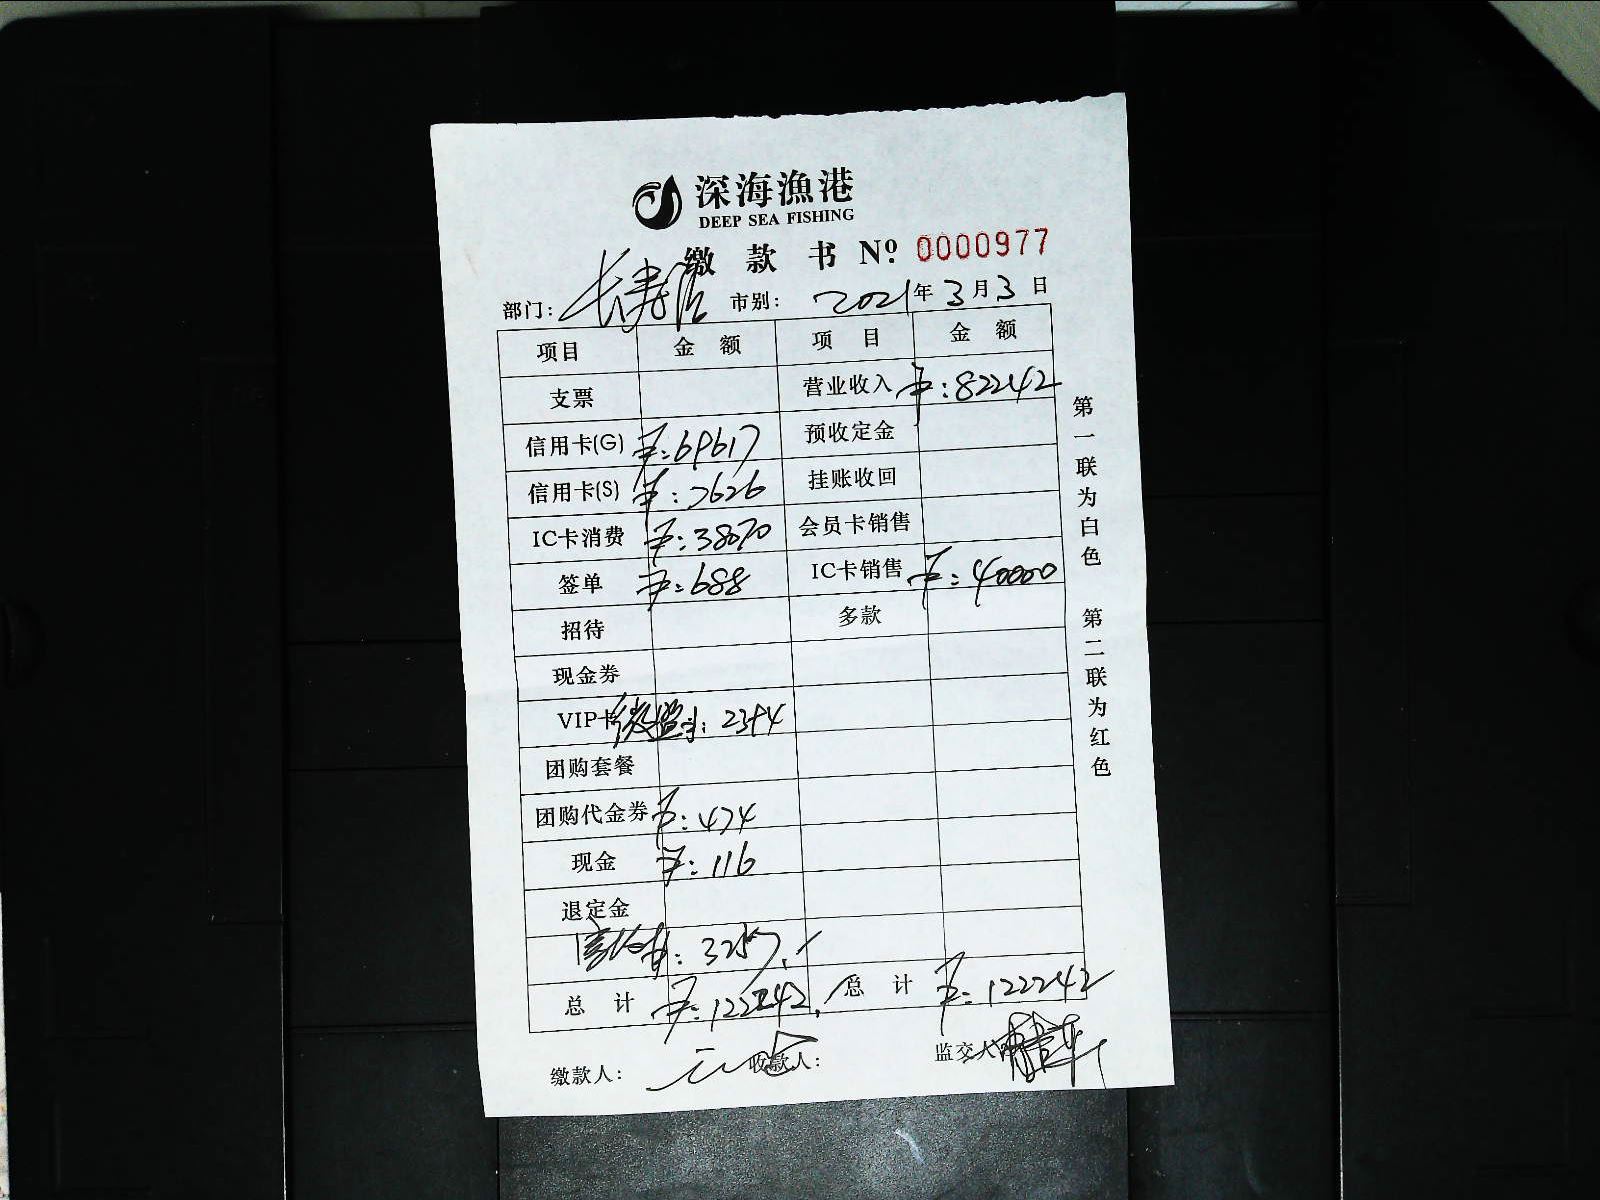 深海漁港
DEEP SEA FISHING
缴款书 Nº: 0000977
部门: 长寿店 市别: 2021年3月3日
项目 金额 项目 金额
支票 营业收入 ¥:82242
信用卡(G) ¥:69617 预收定金
信用卡(S) ¥:7626 挂账收回
IC卡消费 ¥:38070 会员卡销售
签单 ¥:688 IC卡销售 ¥:40000
招待 多款
现金券
VIP卡 微盟¥:2394
团购套餐
团购代金券 ¥:474
现金 ¥:116
退定金
¥:3257
总计 ¥:122242 总计 ¥:122242
缴款人: 收款人: 监交人:
第一联为白色 第二联为红色